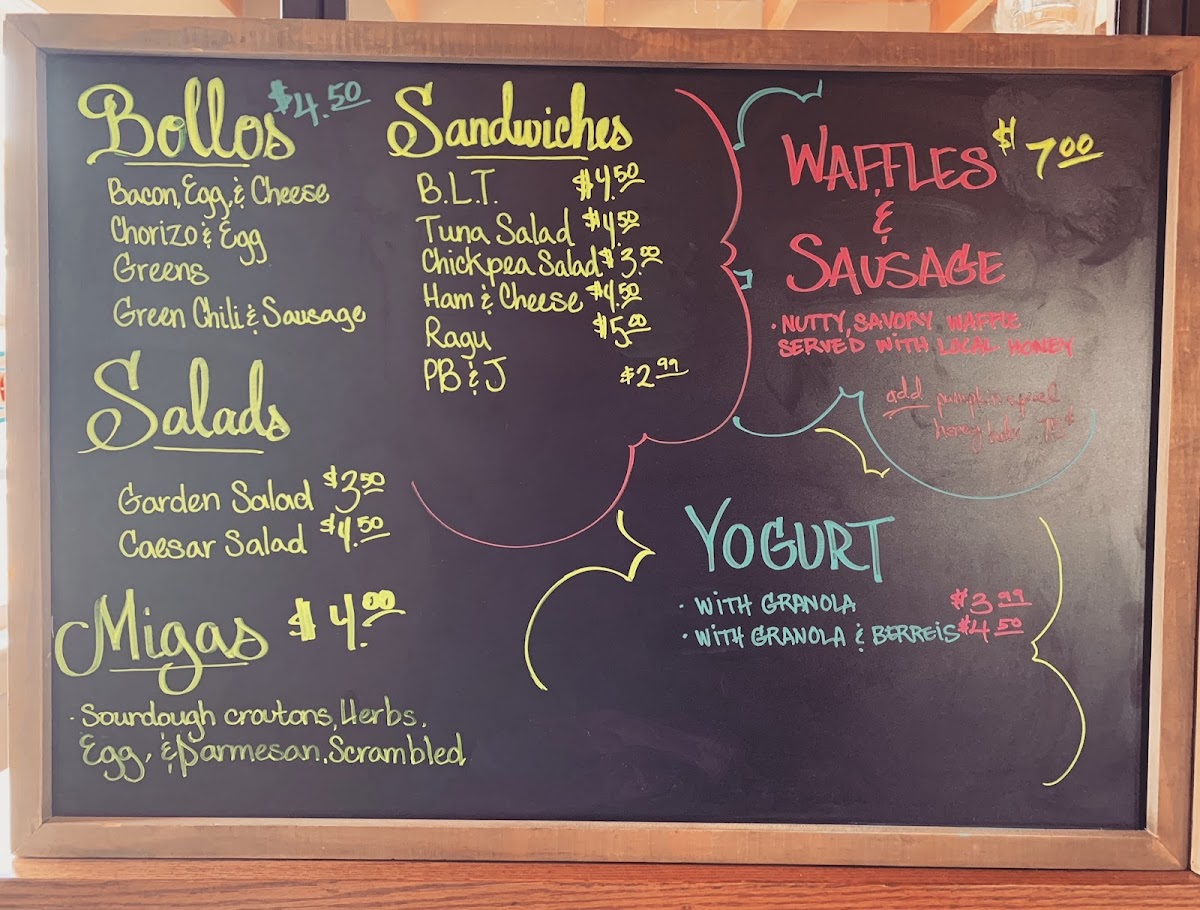 Bollos $4.50
Bacon, Egg, & Cheese
Chorizo & Egg
Greens
Green Chili & Sausage
Salads
Garden Salad $3.50
Caesar Salad $4.50
Migas $4.00
· Sourdough croutons, Herbs,
Egg, & Parmesan. Scrambled
Sandwiches
B.L.T. $4.50
Tuna Salad $4.50
Chickpea Salad $3.00
Ham & Cheese $4.50
Ragu $5.00
PB & J $2.99
WAFFLES $7.00
&
SAUSAGE
· NUTTY, SAVORY WAFFLE
SERVED WITH LOCAL HONEY
add pumpkin spiced
honey
YOGURT
· WITH GRANOLA $3.99
· WITH GRANOLA & BERREIS $4.50